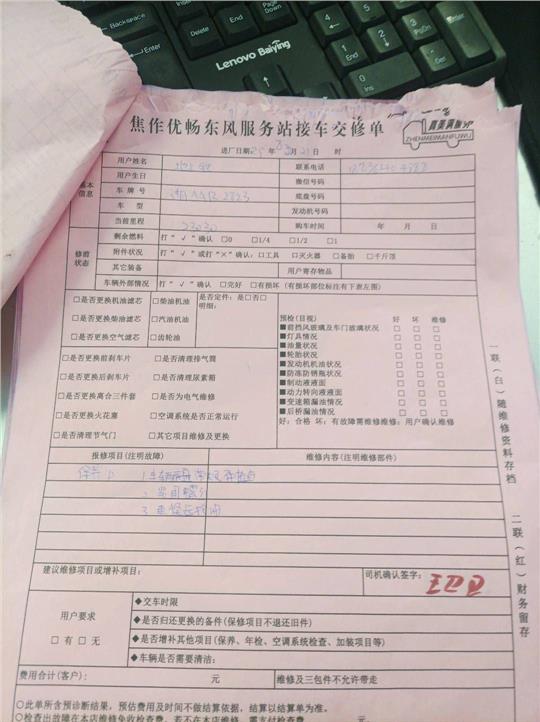 Backspace
Enter
Delete
End
PgDn
Lenovo Baiying
焦作优畅东风服务站接车交修单
真美真服务
ZHENMEIZHENFUWU
进厂日期 年 月 日 时
基本信息
用户姓名 联系电话
用户生日 微信号码
车牌号 底盘号码
车型 发动机号码
当前里程 23030 购车时间 年 月 日
修前状态
剩余燃料 打"√"确认 □0 □1/4 □1/2 □1
附件状况 打"√"或打"×"确认：□工具 □灭火器 □备胎 □千斤顶
其它装备 用户寄存物品
车辆外部情况 打"√"确认 □完好 □有损坏（有损坏部位标注有下表左图）
□是否更换机油滤芯 □柴油机油 是否定件：是□否□
明细：
□是否更换柴油滤芯 □汽油机油
□是否更换空气滤芯 □齿轮油
□是否更换前刹车片 □是否清理排气筒
□是否更换后刹车片 □是否清理尿素箱
□是否更换离合三件套 □是否为电气维修
□是否更换火花塞 □空调系统是否正常运行
□是否清理节气门 □其它项目维修及更换
预检(目视) 好 坏 维修
■前挡风玻璃及车门玻璃状况 □ □ □
■灯具情况 □ □ □
■油量状况 □ □ □
■轮胎状况 □ □ □
■发动机机油状况 □ □ □
■防冻防锈瓶状况 □ □ □
■制动液液面 □ □ □
■动力转向液液面 □ □ □
■变速箱漏油情况 □ □ □
■后桥漏油情况 □ □ □
好：合格 坏：有故障需维修维修：用户确认维修
报修项目（注明故障） 维修内容(注明维修部件)
建议维修项目或增补项目：
司机确认签字：
用户要求
□有 □无
◆交车时限
◆是否归还更换的备件(保修项目不退还旧件)
◆是否增补其他项目(保养、年检、空调系统检查、加装项目等)
◆车辆是否需要清洁：
费用合计(客户)： 元 维修及三包件不允许带走
○此单所含预诊断结果，预估费用及时间不做结算依据，结算以结算单为准。
○检查出故障在本店维修免收检查费，若不在本店维修，需支付检查费 元。
一联（白）随维修资料存档
二联（红）财务留存